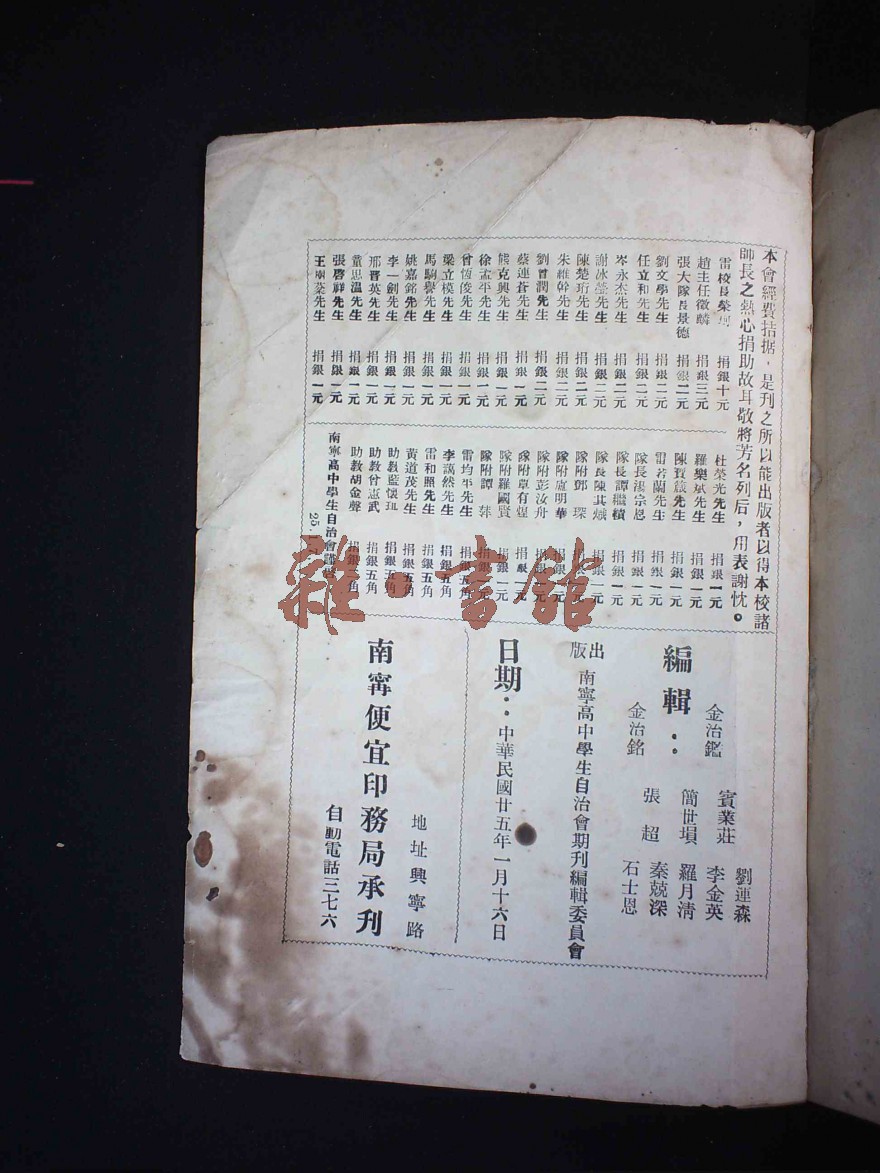 本會經費拮据，是刊之所以能出版者以得本校諸
師長之熱心捐助故耳敬將芳名列后，用表謝忱。
雷校長榮 捐銀十元
趙主任徵麟 捐銀三元
張大隊長景德 捐銀二元
劉文學先生 捐銀二元
任立和先生 捐銀二元
岑永杰先生 捐銀二元
謝冰瑩先生 捐銀二元
陳楚珩先生 捐銀二元
朱維幹先生 捐銀二元
劉曾潤先生 捐銀二元
蔡連蒼先生 捐銀一元
熊克興先生 捐銀一元
徐孟平先生 捐銀一元
曾恆俊先生 捐銀一元
梁立模先生 捐銀一元
馬駒譽先生 捐銀一元
姚嘉銘先生 捐銀一元
李一劍先生 捐銀一元
邢晋英先生 捐銀一元
童思溫先生 捐銀一元
張啓祥先生 捐銀一元
王 先生 捐銀一元
杜榮光先生 捐銀一元
羅樂斌先生 捐銀一元
陳賀 先生 捐銀一元
雷若蘭先生 捐銀一元
隊長湯宗恩 捐銀一元
隊長譚繼横 捐銀一元
隊長陳其熾 捐銀一元
隊附鄧 琛 捐銀一元
隊附盧明華 捐銀一元
隊附彭汝舟 捐銀一元
隊附覃有 捐銀一元
隊附羅國賢 捐銀一元
隊附譚 捐銀一元
雷均平先生 捐銀五角
李蔼然先生 捐銀五角
雷和照先生 捐銀五角
黃道茂先生 捐銀五角
助教藍懷 捐銀五角
助教曾惠武 捐銀五角
助教胡金聲 捐銀五角
南寧高中學生自治會謹啓
25.
編輯：
劉連森
賓業莊 李金英
金治鑑 簡世塤 羅月清
張超 秦兢深
金治銘 石士恩
出版 南寧高中學生自治會期刊編輯委員會
日期：中華民國廿五年一月十六日
地址興寧路
南寗便宜印務局承刋
自動電話三七六
雜·書館